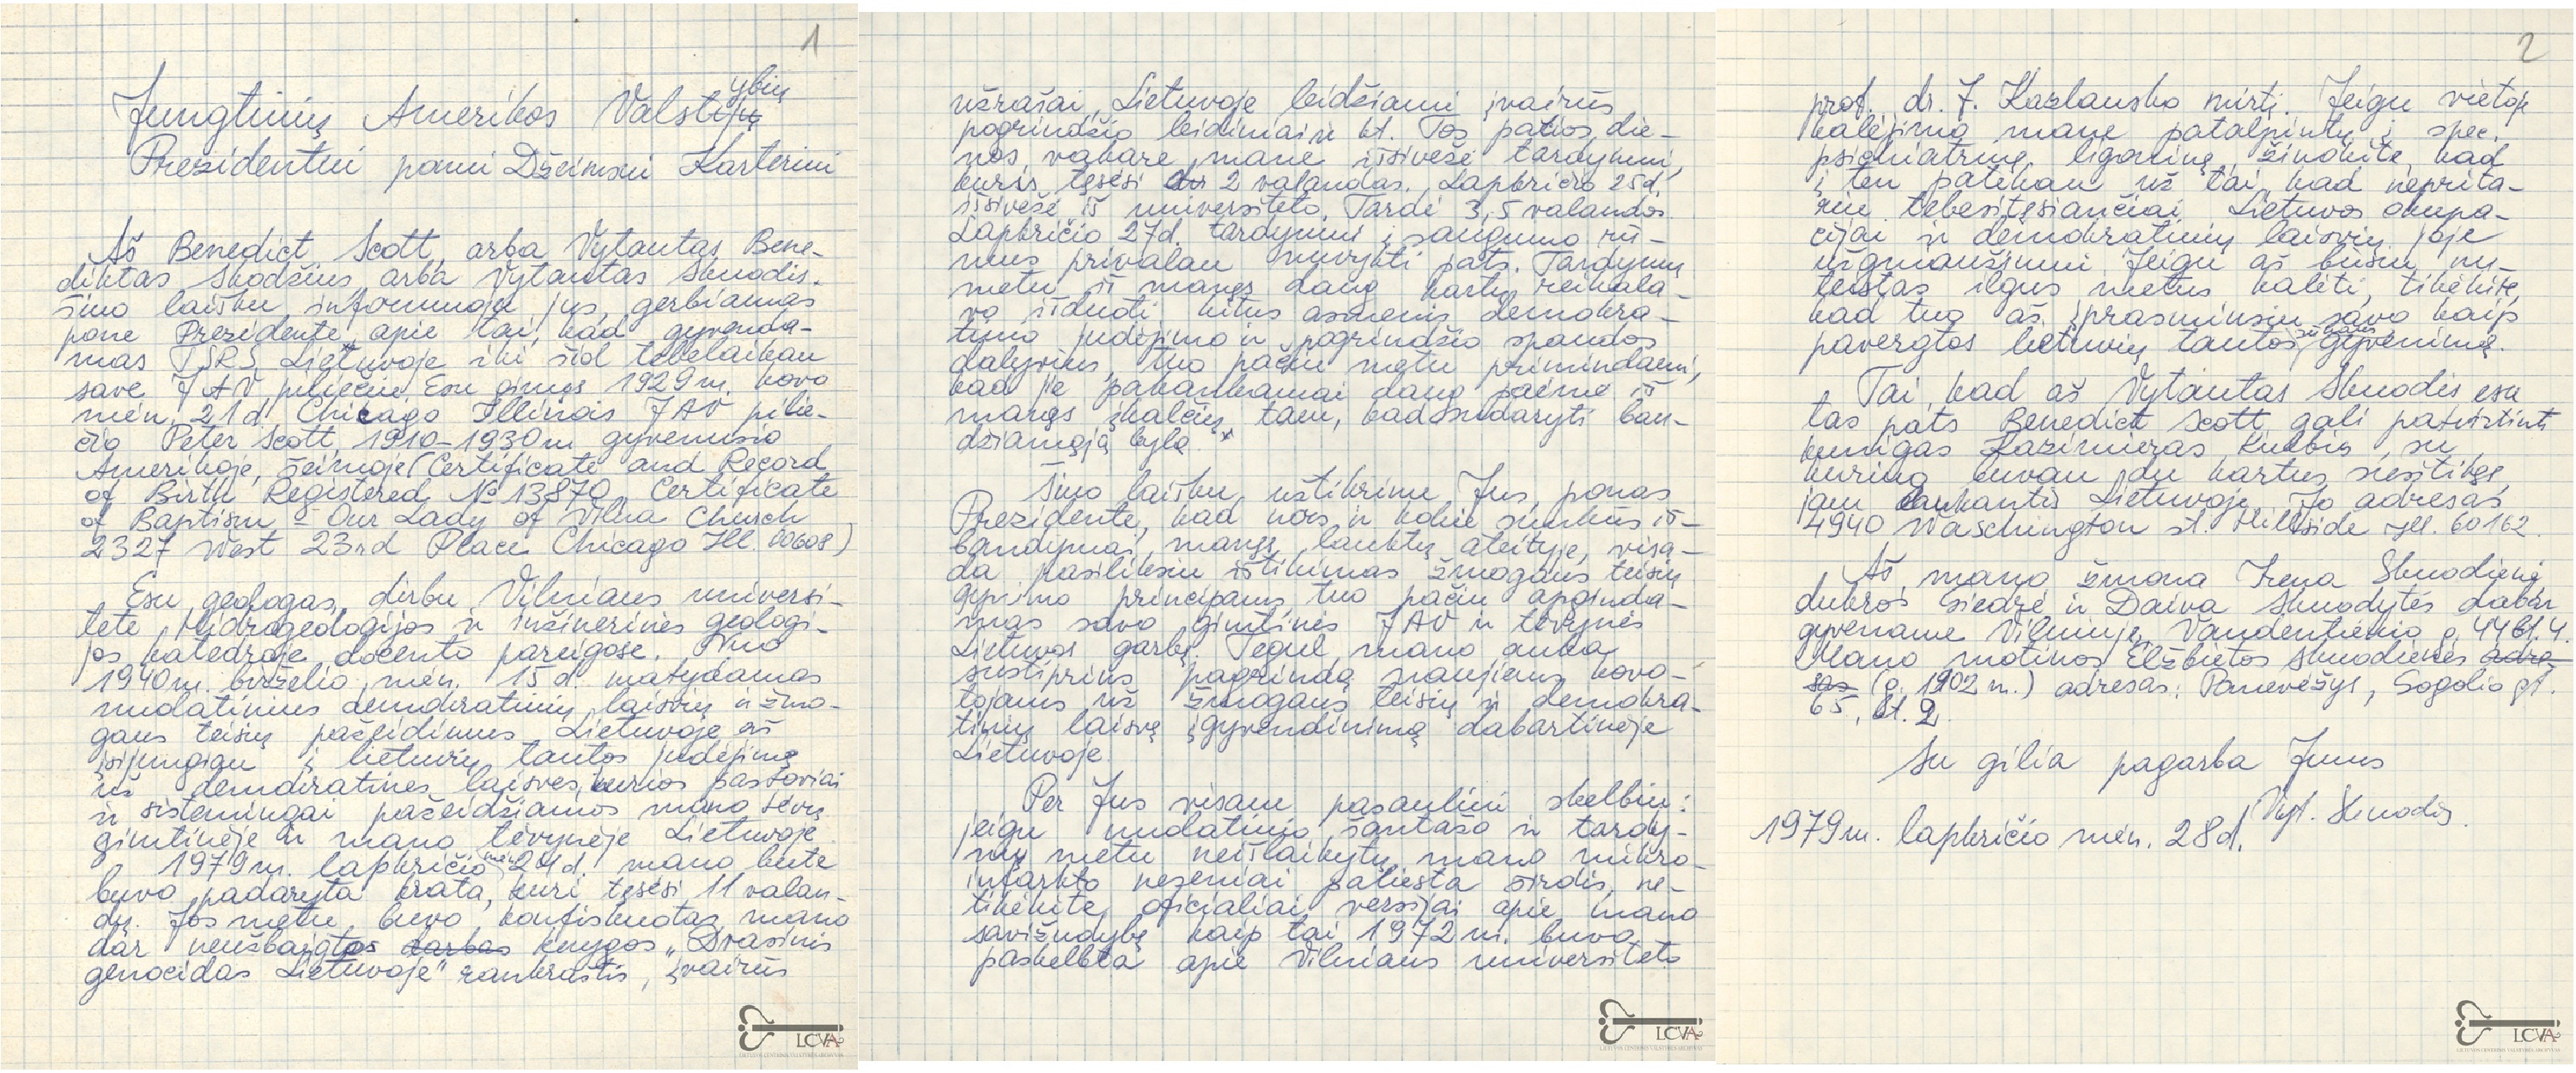 1
Jungtinių Amerikos Valstijų ybių
Prezidentui ponui Džeimsui Karteriui
Aš Benedict Scott, arba Vytautas Bene-
diktas Skodžius, arba Vytautas Skuodis.
šiuo laišku informuoju jus, gerbiamas
pone Prezidente, apie tai, kad gyvenda-
mas TSRS Lietuvoje iki šiol tebelaikau
save JAV piliečiu. Esu gimęs 1929 m. kovo
mėn. 21 d. Chicago Illinois JAV pilie-
čio Peter Scott, 1910-1930 m gyvenusio
Amerikoje, šeimoje (Certificate and Record
of Birth Registered № 13870, Certificate
of Baptism - Our Lady of Vilna Church
2327 West 23rd Place Chicago Ill. 60608)
Esu geologas, dirbu Vilniaus universi-
tete Hidrogeologijos ir inžinerinės geologi-
jos katedroje docento pareigose. Nuo
1940 m. birželio mėn. 15 d. matydamas
nuolatinius demokratinių laisvių ir žmo-
gaus teisių pažeidimus Lietuvoje aš
įsijungiau į lietuvių tautos judėjimą
už demokratines laisves, kurios pastoviai
ir sistemingai pažeidžiamos mano tėvų
gimtinėje ir mano tėvynėje Lietuvoje.
1979 m. lapkričio mėn. 24 d. mano bute
buvo padaryta krata, kuri tęsėsi 11 valan-
dų. Jos metu buvo konfiskuotas mano
dar neužbaigtos darbas knygos „Dvasinis
genocidas Lietuvoje" rankraštis, įvairūs
užrašai, Lietuvoje leidžiami įvairūs
pogrindžio leidiniai ir kt. Tos pačios die-
nos vakare mane išsivežė tardymui,
kuris tęsėsi 2 valandas. Lapkričio 25 d.
išsivežė iš universiteto. Tardė 3,5 valandos.
Lapkričio 27 d. tardymui į saugumo rū-
mus privalau nuvykti pats. Tardymų
metu iš manęs daug kartų reikala-
vo išduoti kitus asmenis demokra-
tinio judėjimo ir pogrindžio spaudos
dalyvius, tuo pačiu metu primindami,
kad jie pakankamai daug paėmė iš
manęs įkalčių tam, kad sudaryti bau-
džiamąją bylą.
Šiuo laišku užtikrinu Jus, ponas
Prezidente, kad nors ir kokie sunkūs iš-
bandymai manęs lauktų ateityje, visa-
da pasiliksiu ištikimas žmogaus teisių
gynimo principams, tuo pačiu apginda-
mas savo gimtinės JAV ir tėvynės
Lietuvos garbę. Tegul mano auka
sustiprins pagrindą naujiems kovo-
tojams už žmogaus teisių ir demokra-
tinių laisvių įgyvendinimą dabartinėje
Lietuvoje.
Per Jus visam pasauliui skelbiu:
jeigu nuolatinio šantažo ir tardy-
mų metu neišlaikytų mano mikro-
infarkto neseniai paliesta širdis, ne-
tikėkite oficialiai versijai apie mano
savižudybę kaip tai 1972 m. buvo
paskelbta apie Vilniaus universiteto
2
prof. dr. J. Kazlausko mirtį. Jeigu vietoje
kalėjimo mane patalpintų į spec.
psichiatrinę ligoninę, žinokite, kad
į ten patekau už tai, kad neprita-
riu tebesitęsiančiai Lietuvos okupa-
cijai ir demokratinių laisvių joje
užgniaužimui. Jeigu aš būsiu nu-
teistas ilgus metus kalėti, tikėkite,
kad tuo aš įprasminsiu savo kaip
pavergtos lietuvių tautos sūnaus gyvenimą.
Tai, kad aš Vytautas Skuodis esu
tas pats Benedict Scott gali patvirtinti
kunigas Kazimieras Kuzbis, su
kuriuo buvau du kartus susitikęs,
jam lankantis Lietuvoje. Jo adresas
4940 Waschington st. Hillside Ill. 60162.
Aš, mano žmona Irena Skuodienė
dukros Giedrė ir Daiva Skuodytės dabar
gyvename Vilniuje, Vandentiekio g. 44 bt. 4.
Mano motinos Elžbietos Skuodienės adre-
sas (g. 1902 m.) adresas: Panevėžys, Gogolio gt.
65, bt. 2.
Su gilia pagarba Jums
Vyt. Skuodis
1979 m. lapkričio mėn. 28 d.
LCVA
LCVA
LCVA